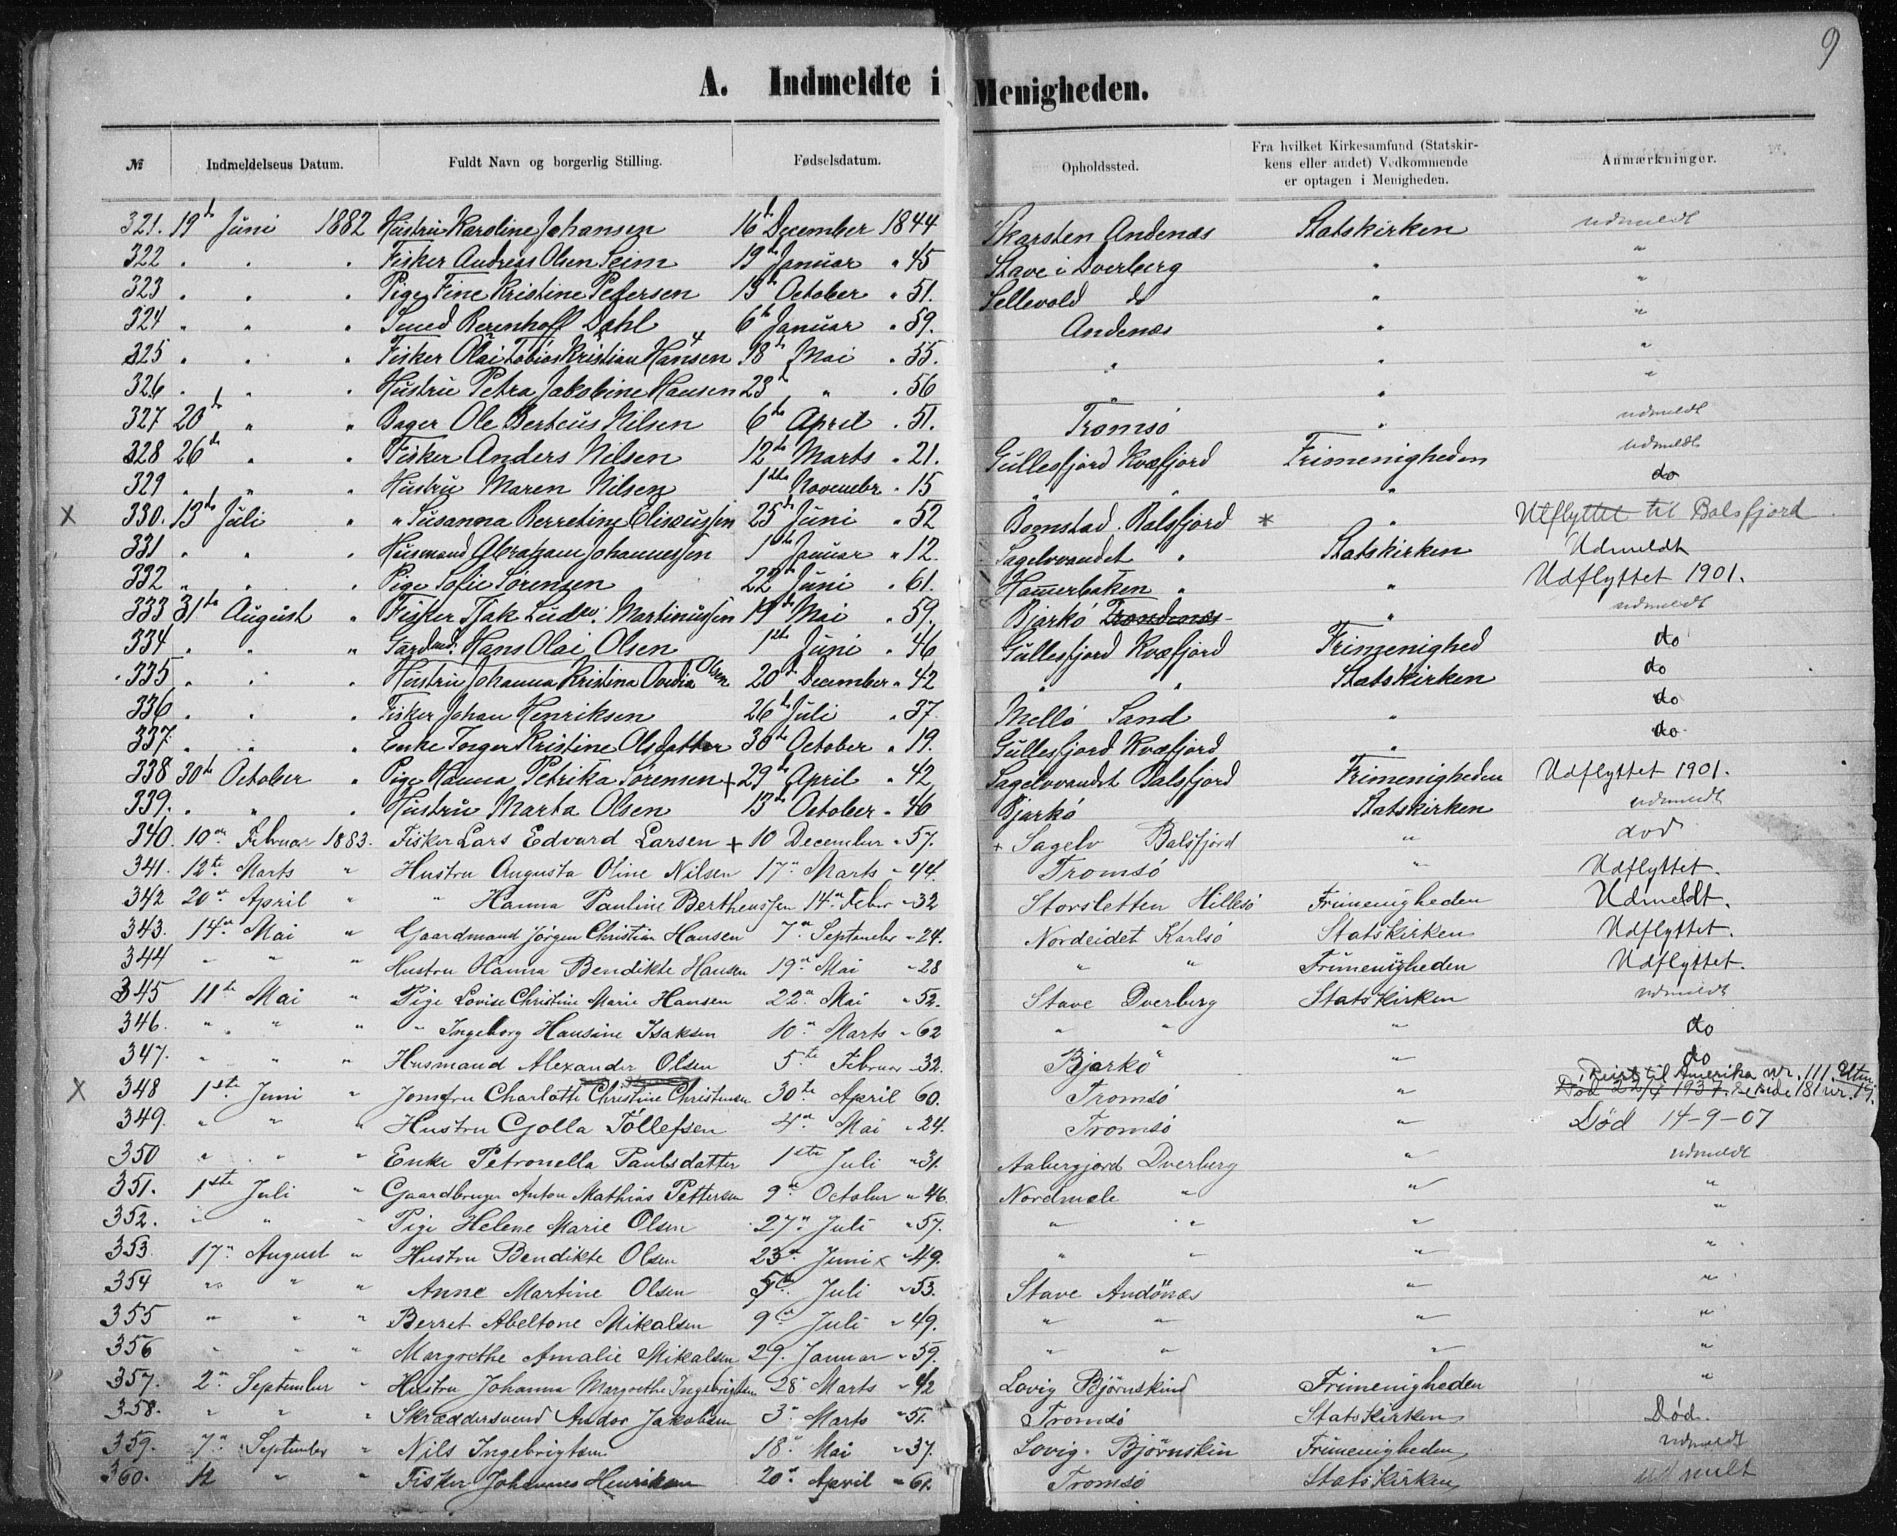 9
A. Indmeldte i Menigheden.
№ Indmeldelsens Datum. Fuldt Navn og borgerlig Stilling. Fødselsdatum. Opholdssted. Fra hvilket Kirkesamfund (Statskirkens eller andet) Vedkommende er optagen i Menigheden. Anmærkninger.
321. 19de Juni 1882 Hustru Karoline Johansen 16de December 1844 Skarsten Andenæs Statskirken udmeldt
322 " " " Fisker Andreas Olsen Seim 19de Januar " 45 Stave i Dverberg " "
323 " " " Pige Fine Kristine Petersen 13de October " 51. Sellevold do " "
324 " " " Smed Dahl 6te Januar " 59. Andenæs " "
325 " " " Fisker Olai Tobias Kristian Hansen 18de Mai " 55. " " "
326 " " " Hustru Petra Jakobine Hansen 23de " " 56 " " "
327 20de " " Bager Ole Berteus Nilsen 6te April " 51. Tromsö " udmeldt
328 26de " " Fisker Anders Nilsen 12te Marts " 21. Gullesfjord Kvæfjord Frimenigheden udmeldt
329 " " " Hustru Maren Nilsen 1ste November " 15 " " " do
X 330. 13de Juli " " Susanna Berretine Eliseussen 25de Juni " 52 Bomstad. Balsfjord * " Utflyttet til Balsfjord
331 " " " Husmand Abraham Johannessen 1ste Januar " 12. Sagelvvandet " Statskirken Udmeldt
332 " " " Pige Sofie Sörensen 22de Juni " 61. " " Udflyttet 1901.
333 31te August " Fisker Isak Ludv: Martinussen 19de Mai " 59. Bjarkö Trondenæs " udmeldt
334 " " " Gardmd: Hans Olai Olsen 1ste Juni " 46 Gullesfjord Kvæfjord Frimenighed do
335 " " " Hustru Johanna Kristina Ovidia Olsen 20de December " 42 " " Statskirken do
336 " " " Fisker Johan Henriksen 26de Juli " 37 Mellö Sand " do
337 " " " Enke Inger Kristine Olsdatter 30te October " 19. Gullesfjord Kvæfjord " do
338 30te October " Pige Hanna Petrika Sörensen + 29de April " 42 Sagelvvandet Balsfjord Frimenigheden Udflyttet 1901.
339. " " " Hustru Marta Olsen 13de October " 46 Bjarkö Statskirken udmeldt
340. 10de Februar 1883. Fisker Lars Edvard Larsen + 10 December " 57. + Sagelv Balsfjord " död
341. 12te Marts " Hustru Augusta Oline Nilsen 17de Marts " 44. Tromsö " Udflyttet.
342 20de April " " Hanna Pauline Berthenssen 14de Febr " 32 Storsletten Hillesö Frimenigheden Udmeldt.
343. 14de Mai " Gaardmand Jörgen Christian Hansen 7de September " 24. Nordeidet Karlsö Statskirken Udflyttet.
344 " " " Hustru Hanna Bendikte Hansen 19de Mai " 28 " " Frimenigheden Udflyttet.
345 11te Mai " Pige Lovise Christine Marie Hansen 22de Mai " 52. Stave Dverberg Statskirken udmeldt
346. " " " " Ingeborg Hansine Isaksen 10de Marts " 62 " " " do
347. " " " Husmand Alexander Olsen 5te Februar " 32. Bjarkö " do
X 348 1ste Juni " Jomfru Charlotte Christine Christensen 30te April 60. Tromsö " Reist til Amerika nr. 111 Utm.
Död 22/4 1937. se side 181 nr. 19.
349. " " " Hustru Golla Töllefsen 4de Mai " 24. Tromsö " Död 14-9-07
350 " " " Enke Petronella Paulsdatter 1ste Juli " 31. Aabergjord Dverberg " udmeldt
351. 1ste Juli " Gaardbruger Anton Mathias Pettersen 9de October " 46. Nordmele " " "
352. " " " Pige Helene Marie Olsen 27de Juli " 57. " " " "
353. 17de August " Hustru Bendikte Olsen 23de Juni x " 49. " " " "
354 " " " Anne Martine Olsen 5te Juli " 53. Stave Andönæs " "
355 " " " Berret Abeltone Mikalsen 9de Juli " 49. " " " "
356 " " " Margrethe Amalie Mikalsen 29. Januar " 59. " " " "
357. 2den September " Hustru Johanna Margrethe Ingebrigtsen 28 Marts " 42 Lovig Björnskind Frimenigheden "
358. " " " Skræddersvend Andor Jakobsen 3. Marts " 51. Tromsö Statskirken Död.
359. 7de September " Nils Ingebrigtsen 18de Mai " 37. Lovig. Björnskin Frimenigheden udmeldt
360. " " Fisker Johannes Henriksen 20de April " 61. Tromsö Statskirken udmelt